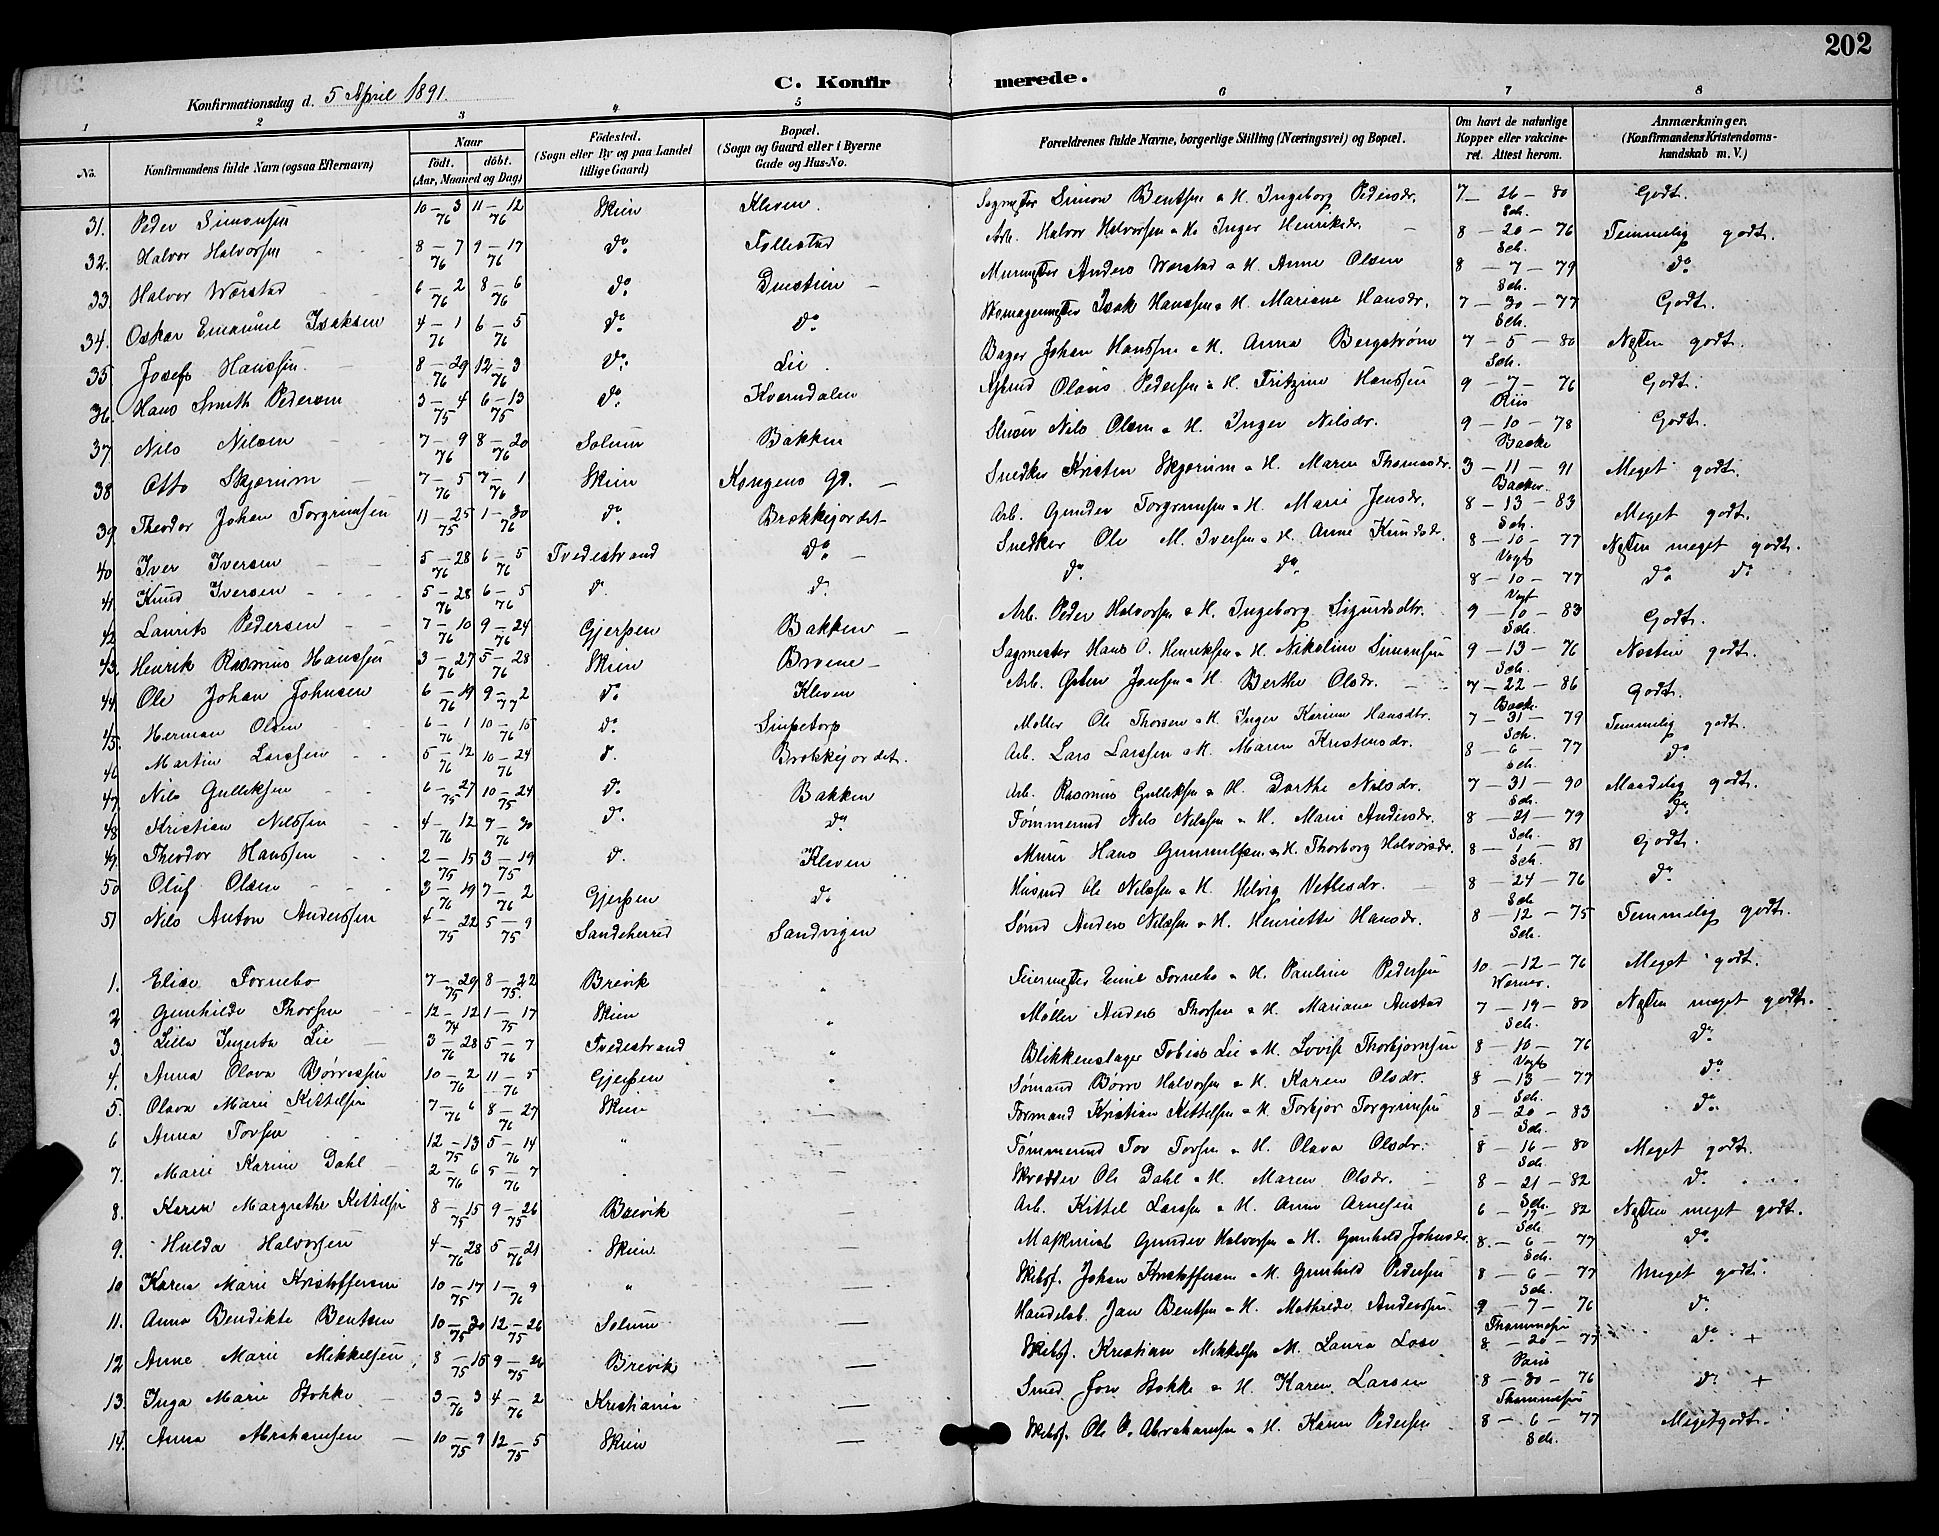 202
Konfirmationsdag d. 5 April 1891.
C. Konfirmerede.
1 2 3 4 5 6 7 8
No. Konfirmandens fulde Navn (ogsaa Efternavn) Naar født. døbt. (Aar, Maaned og Dag) Fødested. (Sogn eller By og paa Landet tillige Gaard) Bopæl. (Sogn og Gaard eller i Byerne Gade og Hus-No. Forældrenes fulde Navne, borgerlige Stilling (Næringsvei) og Bopæl. Om havt de naturlige Kopper eller vakcineret. Attest herom. Anmærkninger. (Konfirmandens Kristendomskundskab m. V.)
31. Peder Simonsen 10-3 76 11-12 76 Skien Kleven. Sagmester Simon Bentsen & H. Ingeborg Pedersdr. 7-26-80 Sch. Godt.
32. Halvor Halvorsen 8-7 76 9-17 76 do. Follestad Arb. Halvor Halvorsen & H. Inger Henriksdr. 8-20-76 Sch. Temmelig godt.
33. Halvor Wærstad 6-2 76 8-6 76 do. Murmester Anders Wærstad & H. Anne Olsen 8-7-79 Sch. do.
34. Oskar Emanuel Isaksen 4-1 76 6-5 76 do. do. Skomagermester Isak Hanssen & H. Mariane Hansdr. 7-30-77 Sch. Godt.
35. Josef Hanssen 8-29 76 12-3 76 do. Lie. Bager Johan Hanssen & H. Anna Bergstrøm 7-5-80 Sch. Næsten godt.
36. Hans Smith Pedersen 3-4 75 6-13 75 do. Kverndalen Olaus Pedersen & H. Fritzine Hanssen 9-7-76 Riis Godt.
37. Nils Nilsen 7-9 76 8-20 76 Solum Bakken Nils Olsen & H. Inger Nilsdr. 9-10-78 Backe Godt.
38. Otto Skjørum 7-5 76 7-1 76 Skien Kongens Gd. Snedker Kristen Skjørum & H. Maren Thomasdr. 3-11-91 Backer Meget godt.
39. Theodor Johan Torgrimsen 11-25 75 1-30 76 do. Brekkejordet Arb. Gunder Torgrimsen & H. Marie Jensdr. 8-13-83 Sch. Meget godt.
40. Iver Iversen 5-28 76 6-5 76 Tvedestrand do. Snedker Ole M. Iversen & H. Anne Knudsdr. 8-10-77 Vogt Næsten meget godt.
41. Knud Iversen 5-28 76 6-5 76 do. do. do. do. 8-10-77 Vogt do. do.
42. Laurits Pedersen 7-10 76 9-24 76 Gjerpen Bakken Arb. Peder Halvorsen & H. Ingeborg Sigurdsdtr. 9-10-83 Sch. Godt.
43. Henrik Rasmus Hanssen 3-27 76 5-28 76 Skien Broene Sagmester Hans O. Henriksen & H. Nikoline Simonsen 9-13-76 Sch. Næsten godt.
44. Ole Johan Johnsen 6-19 76 9-2 77 do. Kleven Arb. Østen Jonsen & H. Berthe Olsdr. 7-22-86 Back. Godt.
45. Herman Olsen 6-1 76 10-15 76 do. Møller Ole Thorsen & H. Inger Karine Hansdtr. 7-31-79 Sch. Temmelig godt.
46. Martin Larssen 5-12 76 10-24 76 do. Brekkejordet. Arb. Lars Larssen & H. Maren Kristensdr. 8-6-77 Sch. do.
47. Nils Gulliksen 6-27 75 10-24 75 do. Bakken Arb. Rasmus Gulliksen & H. Dorthe Nilsdr. 7-31-90 Sch. Maadelig godt.
48. Kristian Nilssen 4-12 76 7-30 76 do. do. Tømmermd Nils Nilssen & H. Marie Andersdr. 8-21-79 Sch. do.
49. Theodor Hanssen 2-15 75 3-19 75 do. Kleven Murer Hans Gunnulfsen & H. Thorborg Halvorsdr. 8-1-81 Sch. Godt.
50. Oluf Olsen 3-19 76 7-2 76 Gjerpen do. Husmd Ole Nilssen & H. Helvig Vetlesdr. 8-24-76 Sch. do.
51. Nils Anton Anderssen 4-22 75 5-9 75 Sandeherred Sandvigen Sømd Anders Nilssen & H. Henriette Hansdr. 8-12-75 Sch. Temmelig godt.
1. Elise Fornebo 7-29 75 8-22 75. Brevik " Feiermester Emil Fornebo & H. Pauline Pedersen 10-12-76 Werner. Meget godt.
2. Gunhilde Thorsen 12-12 74 1-17 75 Skien " Møller Anders Thorsen & H. Mariane Austad 7-19-80 Sch. Næsten meget godt.
3. Lilla Ingerta Lie 3-28 76 5-7 76 Tvedestrand " Blikkenslager Tobias Lie & H. Lovise Thorbjørnsen 8-10-76 Vogt do.
4. Anna Olava Børresen 10-2 76 11-5 76 Gjerpen " Sømand Børre Halvorsen & H. Karen Olsdr. 8-13-77 Sch. do.
5. Olava Marie Kittelsen 7-6 76 8-27 76 Skien — Formand Kristian Kittelsen & H. Torbjør Torgrimsen 8-20-83 Sch. do.
6. Anna Torsen 12-13 75 5-14 76 " — Tømmermd Tov Torsen & H. Olava Olsdr. 8-16-80 Sch. Meget godt.
7. Marie Karine Dahl 2-6 76 5-7 76 " — Skredder Ole Dahl & H. Maren Olsdr. 8-21-82 Sch. do.
8. Karen Margrethe Kittelsen 8-15 75 9-26 75 Brevik — Arb. Kittel Larssen & H. Anne Arnesen 6-19-82 Sch. Næsten meget godt.
9. Hulda Halvorsen 4-28 76 5-21 76 Skien — Maskinist Gunder Halvorsen & H. Gunhild Johnsdr. 8-6-77 Sch. do.
10. Karen Marie Kristoffersen 10-17 75 1-9 76 " — Skibsf. Johan Kristoffersen & H. Gunhild Pedersen 8-6-77 Sch. Meget godt.
11. Anna Bendikte Bentsen 10-30 75 12-26 75 Solum — Handelsb. Jan Bentsen & H. Mathilde Anderssen 9-7-76 Thommesen do.
12. Anne Marie Mikkelsen 8-15 75 9-26 75 Brevik — Skibsf. Kristian Mikkelsen & H. Laura 8-20-77 do. +
13. Inga Marie Stokke 3-3 76 4-2 76 Kristiania — Smed Jon Stokke & H. Karen Larsen 8-30-76 Thommesen do. +
14. Anna Abrahamsen 10-9 75 12-5 75 Skien — Skibsf. Ole O. Abrahamsen & H. Karen Pedersen 8-6-77 Sch. Meget godt.